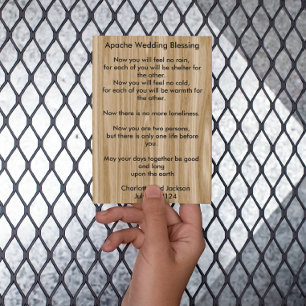 Apache Wedding Blessing
Now you will feel no rain,
for each of you will be shelter for
the other.
Now you will feel no cold,
for each of you will be warmth for
the other.
Now there is no more loneliness.
Now you are two persons,
but there is only one life before
you.
May your days together be good
and long
upon the earth
Jackson
124